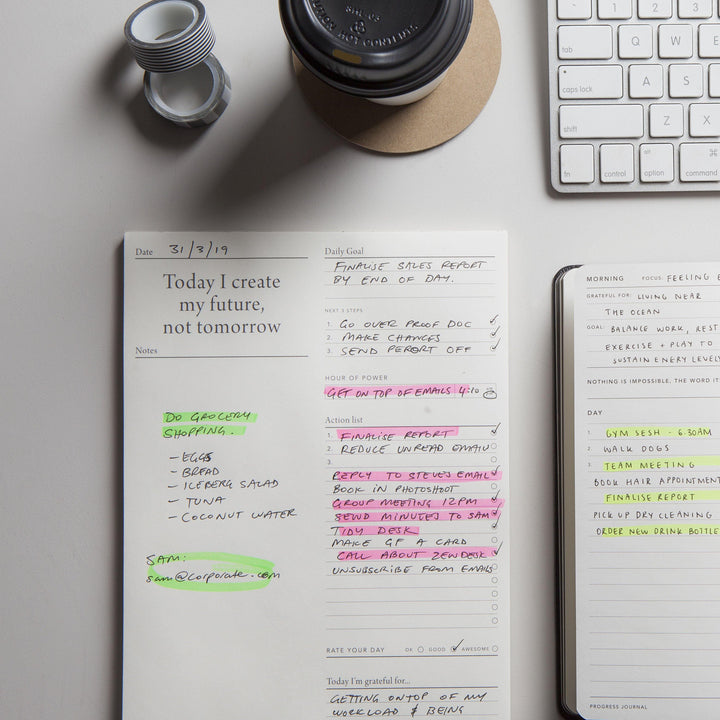 HOT CONTENTS
tab
Q
W
E
caps lock
A
S
D
shift
Z
X
fn
control
alt
option
⌘
command
Date 31/3/19
Today I create
my future,
not tomorrow
Notes
DO GROCERY
SHOPPING.
- EGGS
- BREAD
- ICEBERG SALAD
- TUNA
- COCONUT WATER
SAM:
sam@corporate.com
Daily Goal
FINALISE SALES REPORT
BY END OF DAY.
NEXT 3 STEPS
1. GO OVER PROOF DOC ✓
2. MAKE CHANGES ✓
3. SEND REPORT OFF ✓
HOUR OF POWER
GET ON TOP OF EMAILS 4:10
Action list
1. FINALISE REPORT ✓
2. REDUCE UNREAD EMAIL
3.
REPLY TO STEVE'S EMAIL ✓
BOOK IN PHOTOSHOOT
GROUP MEETING 12PM ✓
SEND MINUTES TO SAM ✓
TIDY DESK ✓
MAKE GF A CARD
CALL ABOUT ZENDESK ✓
UNSUBSCRIBE FROM EMAILS
RATE YOUR DAY OK GOOD ✓ AWESOME
Today I'm grateful for...
GETTING ON TOP OF MY
WORKLOAD & BEING
MORNING FOCUS: FEELING
GRATEFUL FOR: LIVING NEAR
THE OCEAN
GOAL: BALANCE WORK, REST
EXERCISE + PLAY TO
SUSTAIN ENERY LEVELS
NOTHING IS IMPOSSIBLE. THE WORD IT
DAY
1. GYM SESH - 6.30AM
2. WALK DOGS
3. TEAM MEETING
BOOK HAIR APPOINTMENT
FINALISE REPORT
PICK UP DRY CLEANING
ORDER NEW DRINK BOTTLE
PROGRESS JOURNAL